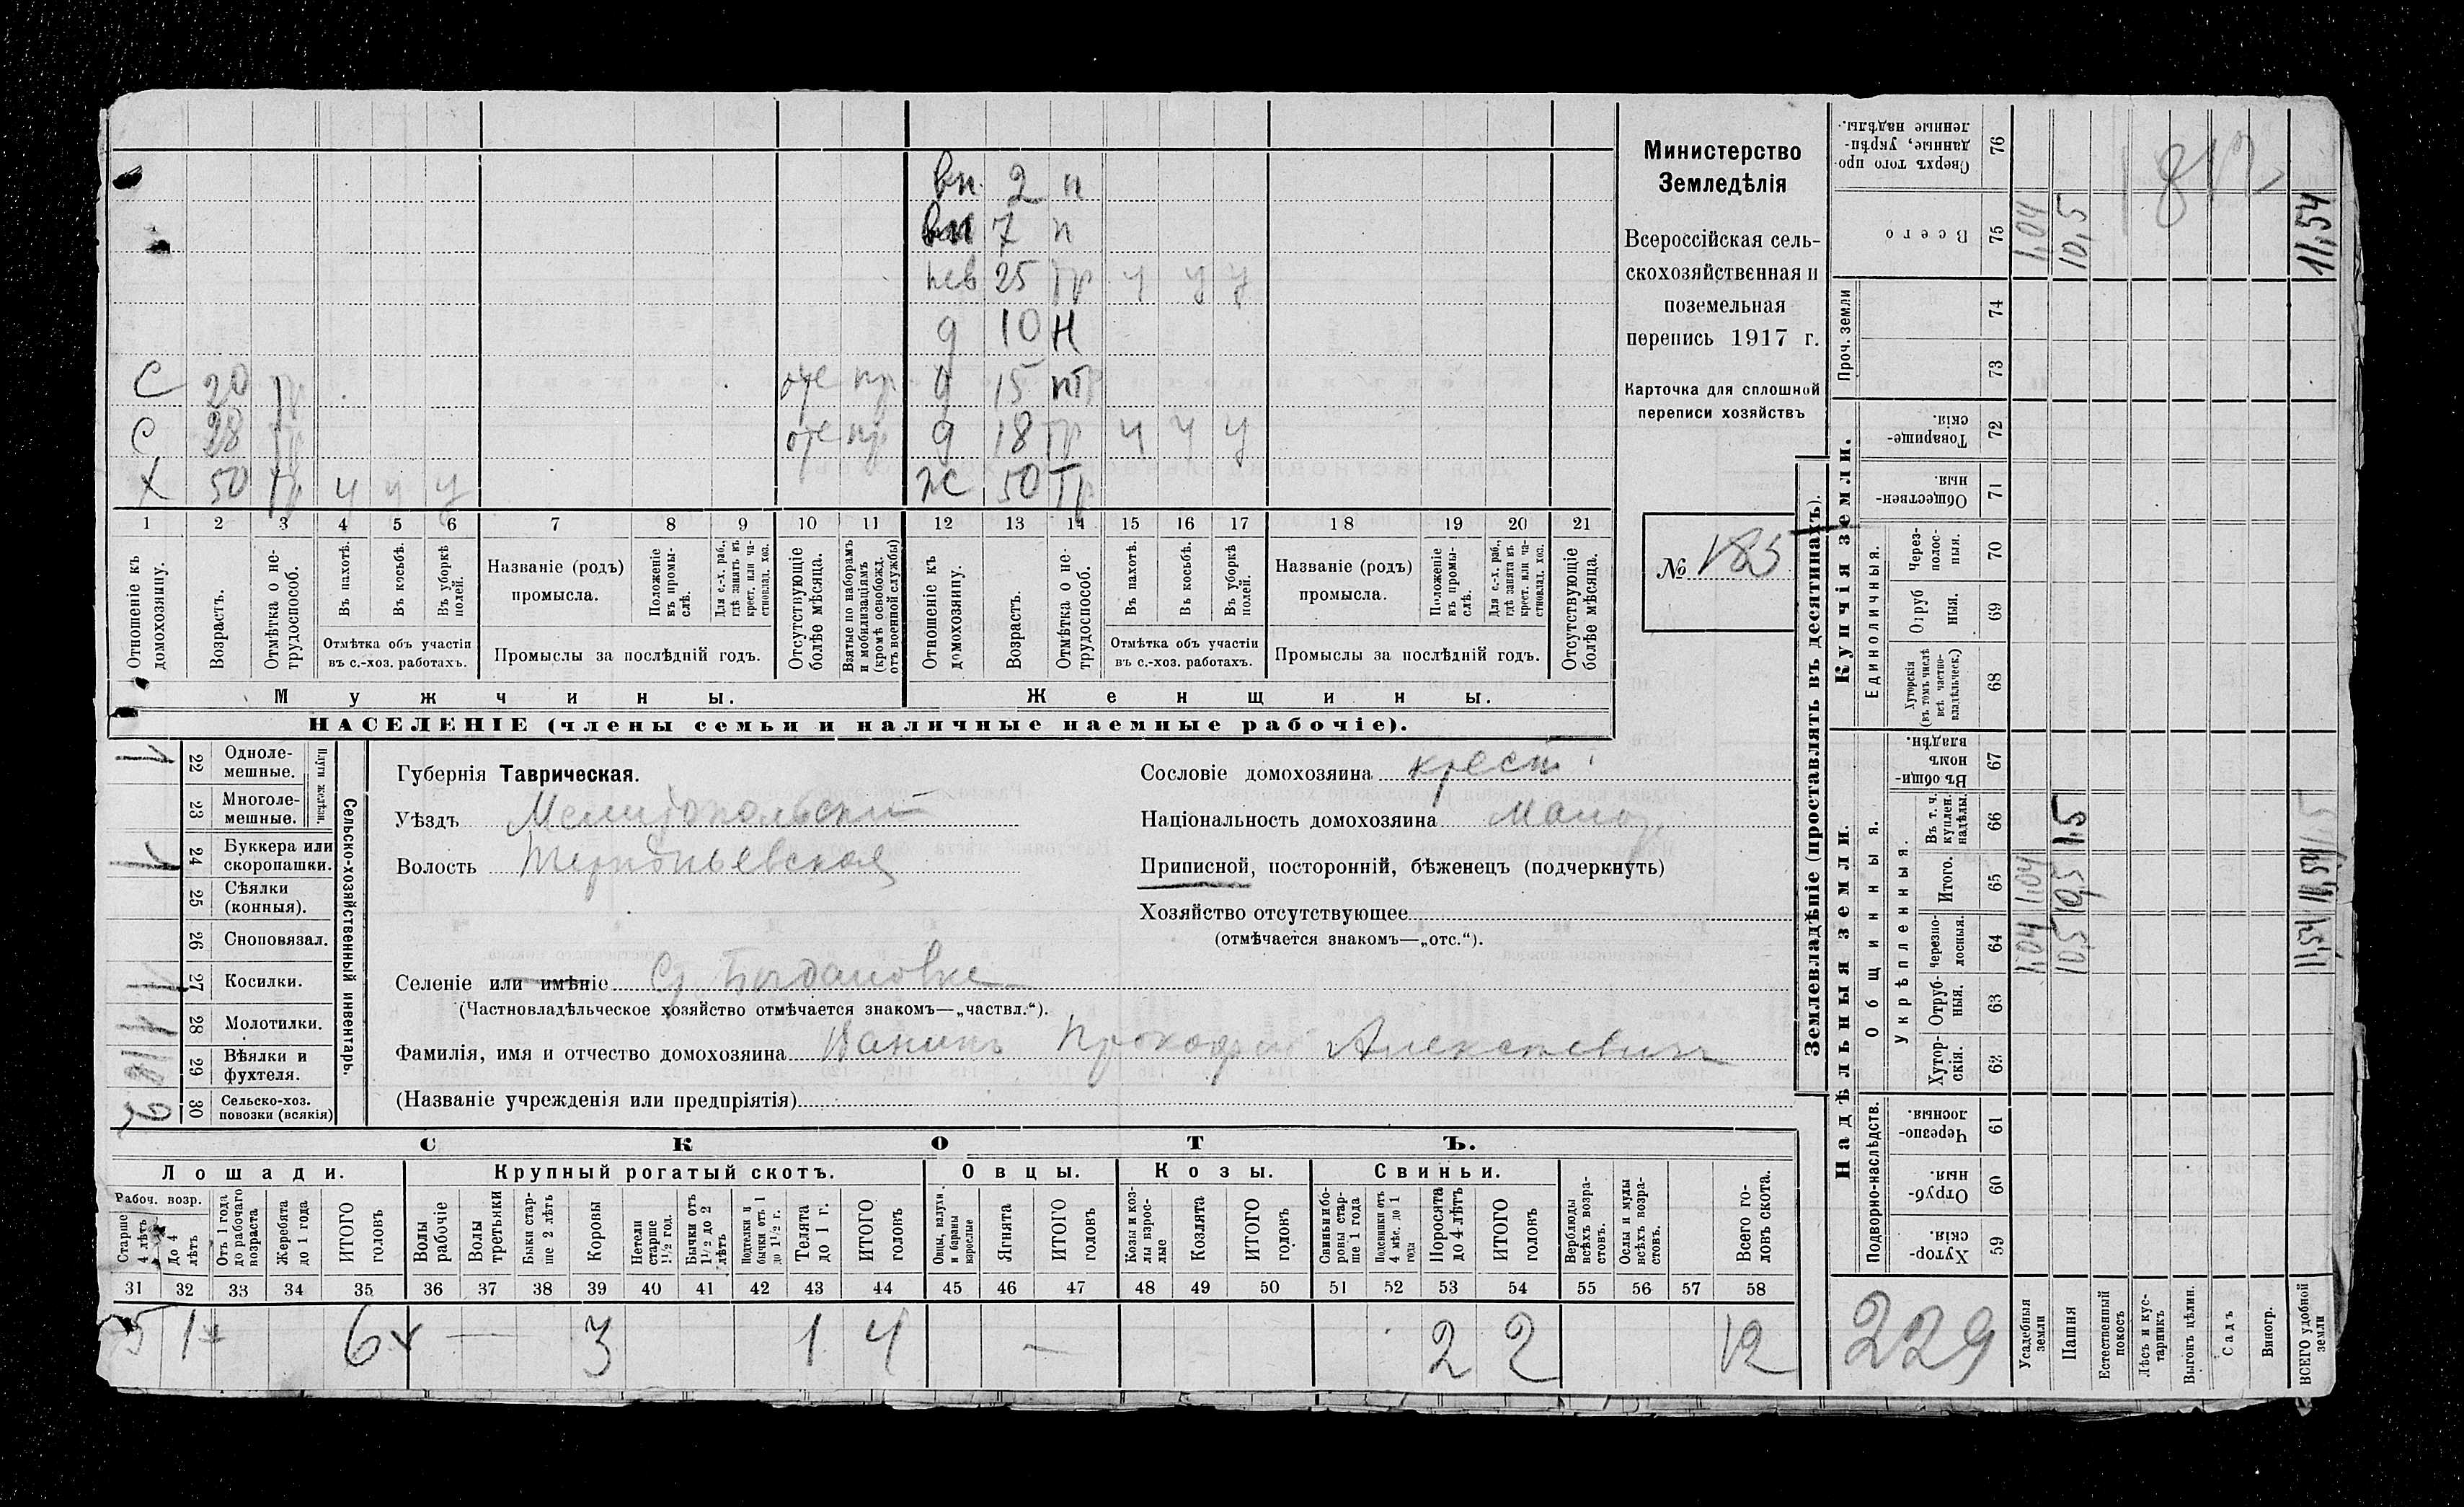 вн. 2 н
вн 7 н
нев 25 тр ч ч ч
д 10 н
С 20 тр отс пр д 15 пт
С 28 тр отс пр д 18 тр ч ч ч
Х 50 тр ч ч ч Ж 50 Тр
1 2 3 4 5 6 7 8 9 10 11 12 13 14 15 16 17 18 19 20 21
Отношеніе къ домохозяину.
Возрастъ.
Отмѣтка о не-трудоспособ.
Въ пахотѣ.
Въ косьбѣ.
Въ уборкѣ полей.
Отмѣтка объ участіи
въ с.-хоз. работахъ.
Названіе (родъ)
промысла.
Положеніе въ промы-слѣ.
Для с.-х. раб., гдѣ занятъ въ крест. или ча-стновлад. хоз.
Промыслы за послѣдній годъ.
Отсутствующіе болѣе мѣсяца.
Взятые по наборамъ и мобилизаціямъ (кромѣ освобожд. отъ военной службы)
Отношеніе къ домохозяину.
Возрастъ.
Отмѣтка о не-трудоспособ.
Въ пахотѣ.
Въ косьбѣ.
Въ уборкѣ полей.
Отмѣтка объ участіи
въ с.-хоз. работахъ.
Названіе (родъ)
промысла.
Положеніе въ промы-слѣ.
Для с.-х. раб., гдѣ занята въ крест. или ча-стновлад. хоз.
Промыслы за послѣдній годъ.
Отсутствующіе болѣе мѣсяца.
Мужчины. Женщины.
НАСЕЛЕНІЕ (члены семьи и наличные наемные рабочіе).
Министерство
Земледѣлія
Всероссійская сель-
скохозяйственная и
поземельная
перепись 1917 г.
Карточка для сплошной
переписи хозяйствъ
№ 185
Сельско-хозяйственный инвентарь.
Плуги желѣзн.
22 Одноле-мешные. 1
23 Многоле-мешные.
24 Буккера или скоропашки. 1
25 Сѣялки (конныя).
26 Сноповязал.
27 Косилки. 1
28 Молотилки. 1
29 Вѣялки и фухтеля. 1
30 Сельско-хоз. повозки (всякія) 2
Губернія Таврическая.
Уѣздъ Мелитопольскій
Волость Терпѣньевская
Сословіе домохозяина крест.
Національность домохозяина Малор.
Приписной, посторонній, бѣженецъ (подчеркнуть)
Хозяйство отсутствующее
(отмѣчается знакомъ—„отс.“).
Селеніе или имѣніе Ср. Богдановка
(Частновладѣльческое хозяйство отмѣчается знакомъ—„частвл.“).
Фамилія, имя и отчество домохозяина Ванинъ Прокофій Алексѣевичъ
(Названіе учрежденія или предпріятія)
СКОТЪ.
Лошади. Крупный рогатый скотъ. Овцы. Козы. Свиньи.
Рабоч. возр.
Старше 4 лѣтъ
До 4 лѣтъ
Отъ 1 года до рабочаго возраста
Жеребята до 1 года
ИТОГО головъ
Волы рабочіе
Волы третьяки
Быки стар-ше 2 лѣтъ
Коровы
Нетели старше 1½ год.
Бычки отъ 1½ до 2 лѣтъ
Подтелки и бычки отъ 1 до 1½ г.
Телята до 1 г.
ИТОГО головъ
Овцы, валухи и бараны взрослые
Ягнята
ИТОГО головъ
Козы и коз-лы взрос-лые
Козлята
ИТОГО головъ
Свиньи и бо-ровы стар-ше 1 года
Подсвинки отъ 4 мѣс. до 1 года
Поросята до 4 лѣтъ
ИТОГО головъ
Верблюды всѣхъ возра-стовъ.
Ослы и мулы всѣхъ возра-стовъ.
Всего го-ловъ скота.
31 32 33 34 35 36 37 38 39 40 41 42 43 44 45 46 47 48 49 50 51 52 53 54 55 56 57 58
5 1 6 — 3 1 4 — 2 2 12
Землевладѣніе (проставлять въ десятинахъ).
Купчія земли.
Надѣльныя земли.
Сверхъ того про-данные, укрѣп-ленные надѣлы. 76
Всего 75 1,04 10,5 11,54
Проч. земли 74 73
Товарище-скія 72
Обществен-ныя. 71
Единоличныя.
Через-полос-ныя. 70
Отруб ныя. 69
Хуторскія (въ томъ числѣ всѣ частно-владѣльческ.) 68
Въ общи-номъ владѣн. 67
Общинныя.
Укрѣпленныя.
Въ т. ч. куплен. надѣлы. 66 1,5 1,5
Итого. 65 1,04 10,5 11,54
Черезпо-лосныя. 64 1,04 10,5 11,54
Отруб-ныя. 63
Хутор-скія. 62
Подворно-наслѣдств.
Черезпо-лосныя. 61
Отруб-ныя. 60
Хутор-скія. 59
1812
229
Усадебныя земли
Пашня
Естественный покосъ
Лѣсъ и кус-тарникъ
Выгонъ цѣлин.
Садъ
Виногр.
ВСЕГО удобной земли